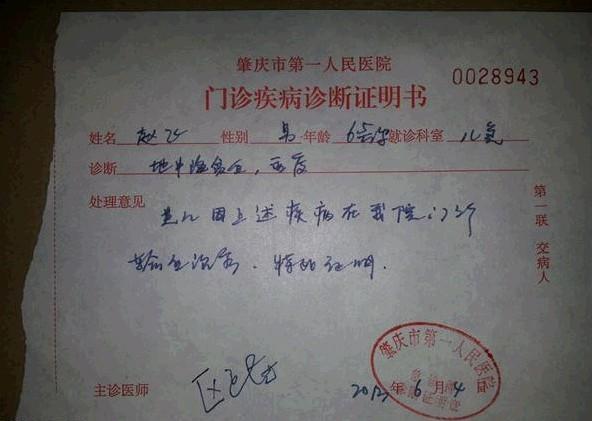 肇庆市第一人民医院
0028943
门诊疾病诊断证明书
姓名 性别 男 年龄 6岁 就诊科室 儿童
诊断 地中海贫血,重度
处理意见 患儿因上述疾病在我院门诊
输血治疗.特此证明.
第一联 交病人
主诊医师 2012年6月4日
肇庆市第一人民医院